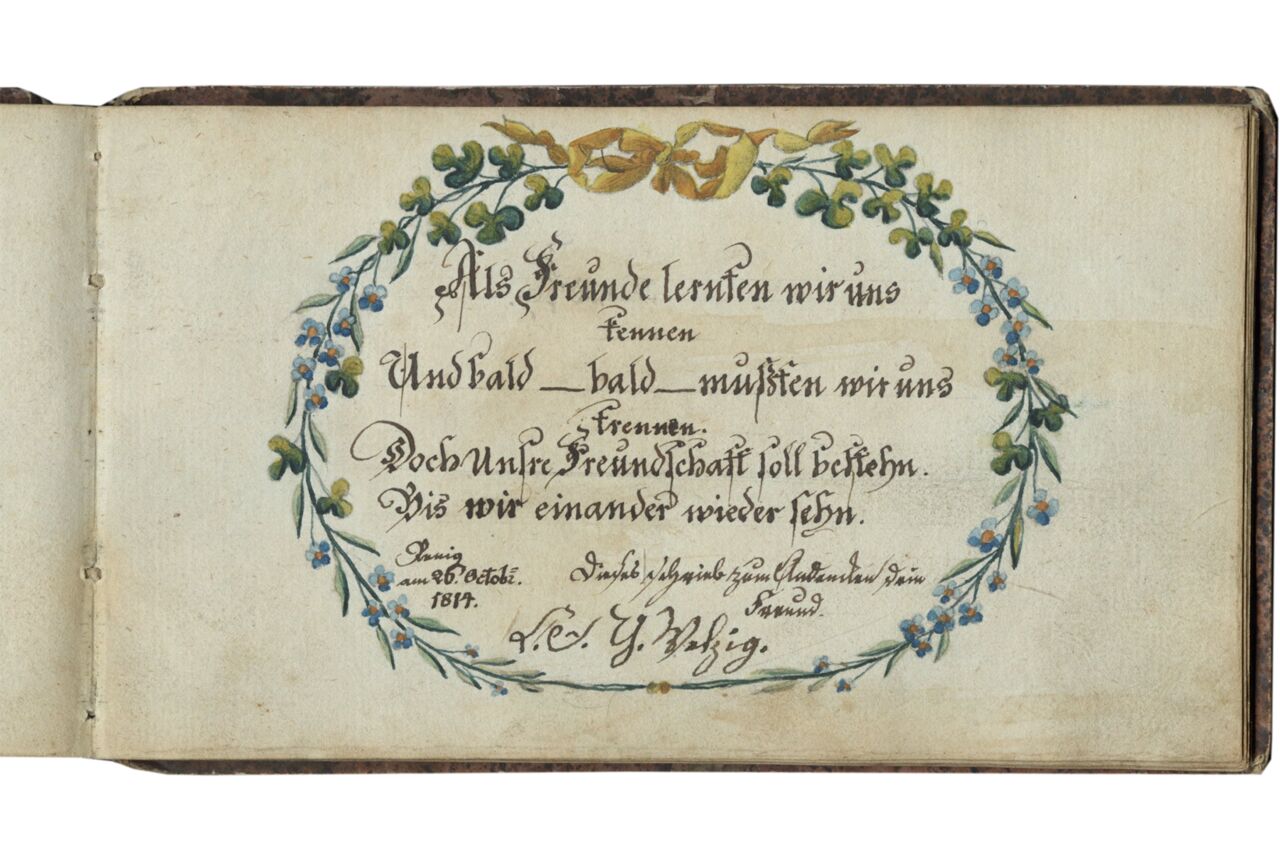 Als Freunde lernten wir uns
kennen
Und bald — bald — mußten wir uns
trennen.
Doch Unsre Freundschaft soll bestehn.
Bis wir einander wieder sehn.
Penig
am 26. Octobr.
1814.
Dieses schrieb zum Andencken dein
Freund.
Welzig.